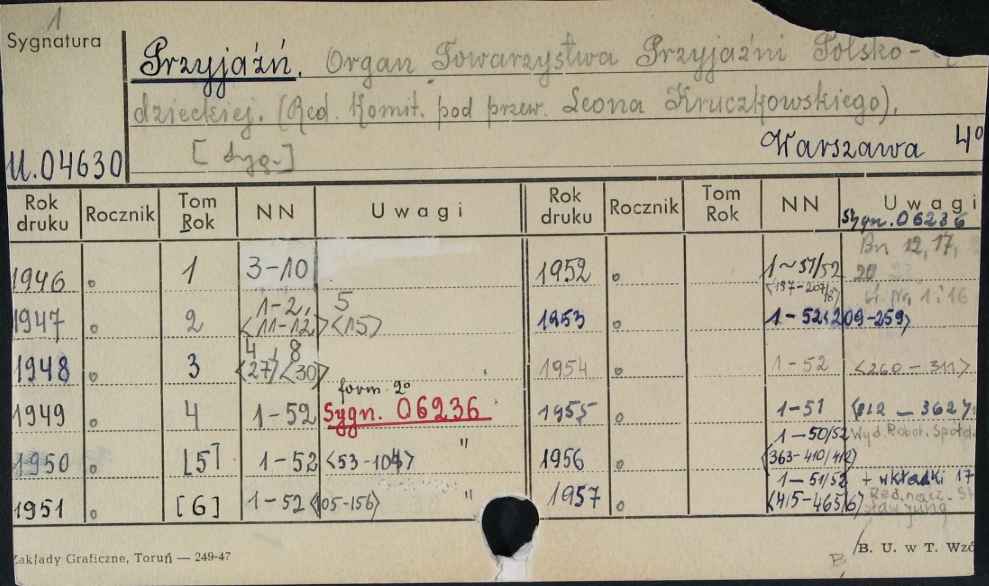 1
Sygnatura
Przyjaźń. Organ Towarzystwa Przyjaźni Polsko-
dzieckiej. (Red. Komit. pod przew. Leona Kruczkowskiego).
[tyg.] Warszawa 4º
U.04630
Rok druku Rocznik Tom Rok NN Uwagi Rok druku Rocznik Tom Rok NN Uwagi
Sygn. 06236
1946 1 3-10 1952 1-51/52 Bn 12, 17,
<157-207/8> 20
1 i 16
1947 2 1-2, 5 1953 1-52<209-259>
<11-12> <15>
1948 3 4, 8 1954 1-52 <260-311>
<27> <30>
form. 2º
1949 4 1-52 Sygn. 06236 1955 1-51 <312-362>
1950 [5] 1-52 <53-104> " 1956 1-50/52 Wyd. Robot. Spółdz
<363-410/412>
1951 [6] 1-52 <105-156> " 1957 1-51/52 + wkładki 17
<415-465/6> Red. nacz. St
Zakłady Graficzne, Toruń — 249-47
B. U. w T. Wzó